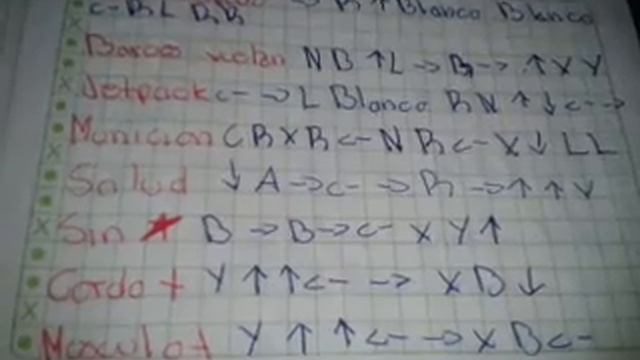 <- B L B B -> B ↑ Blanco Blanco
Barcos vuelan N B ↑ L -> B -> ↑ X Y
Jetpack <- -> L Blanco B N ↑ ↓ <- ->
Municion C B X B <- N B <- X ↓ L L
Salud ↓ A -> <- -> B -> ↑ ↑ Y
Sin ★ B -> B -> <- X Y ↑
Gordo + Y ↑ ↑ <- -> X B ↓
Musculo + Y ↑ ↑ <- -> X B <-